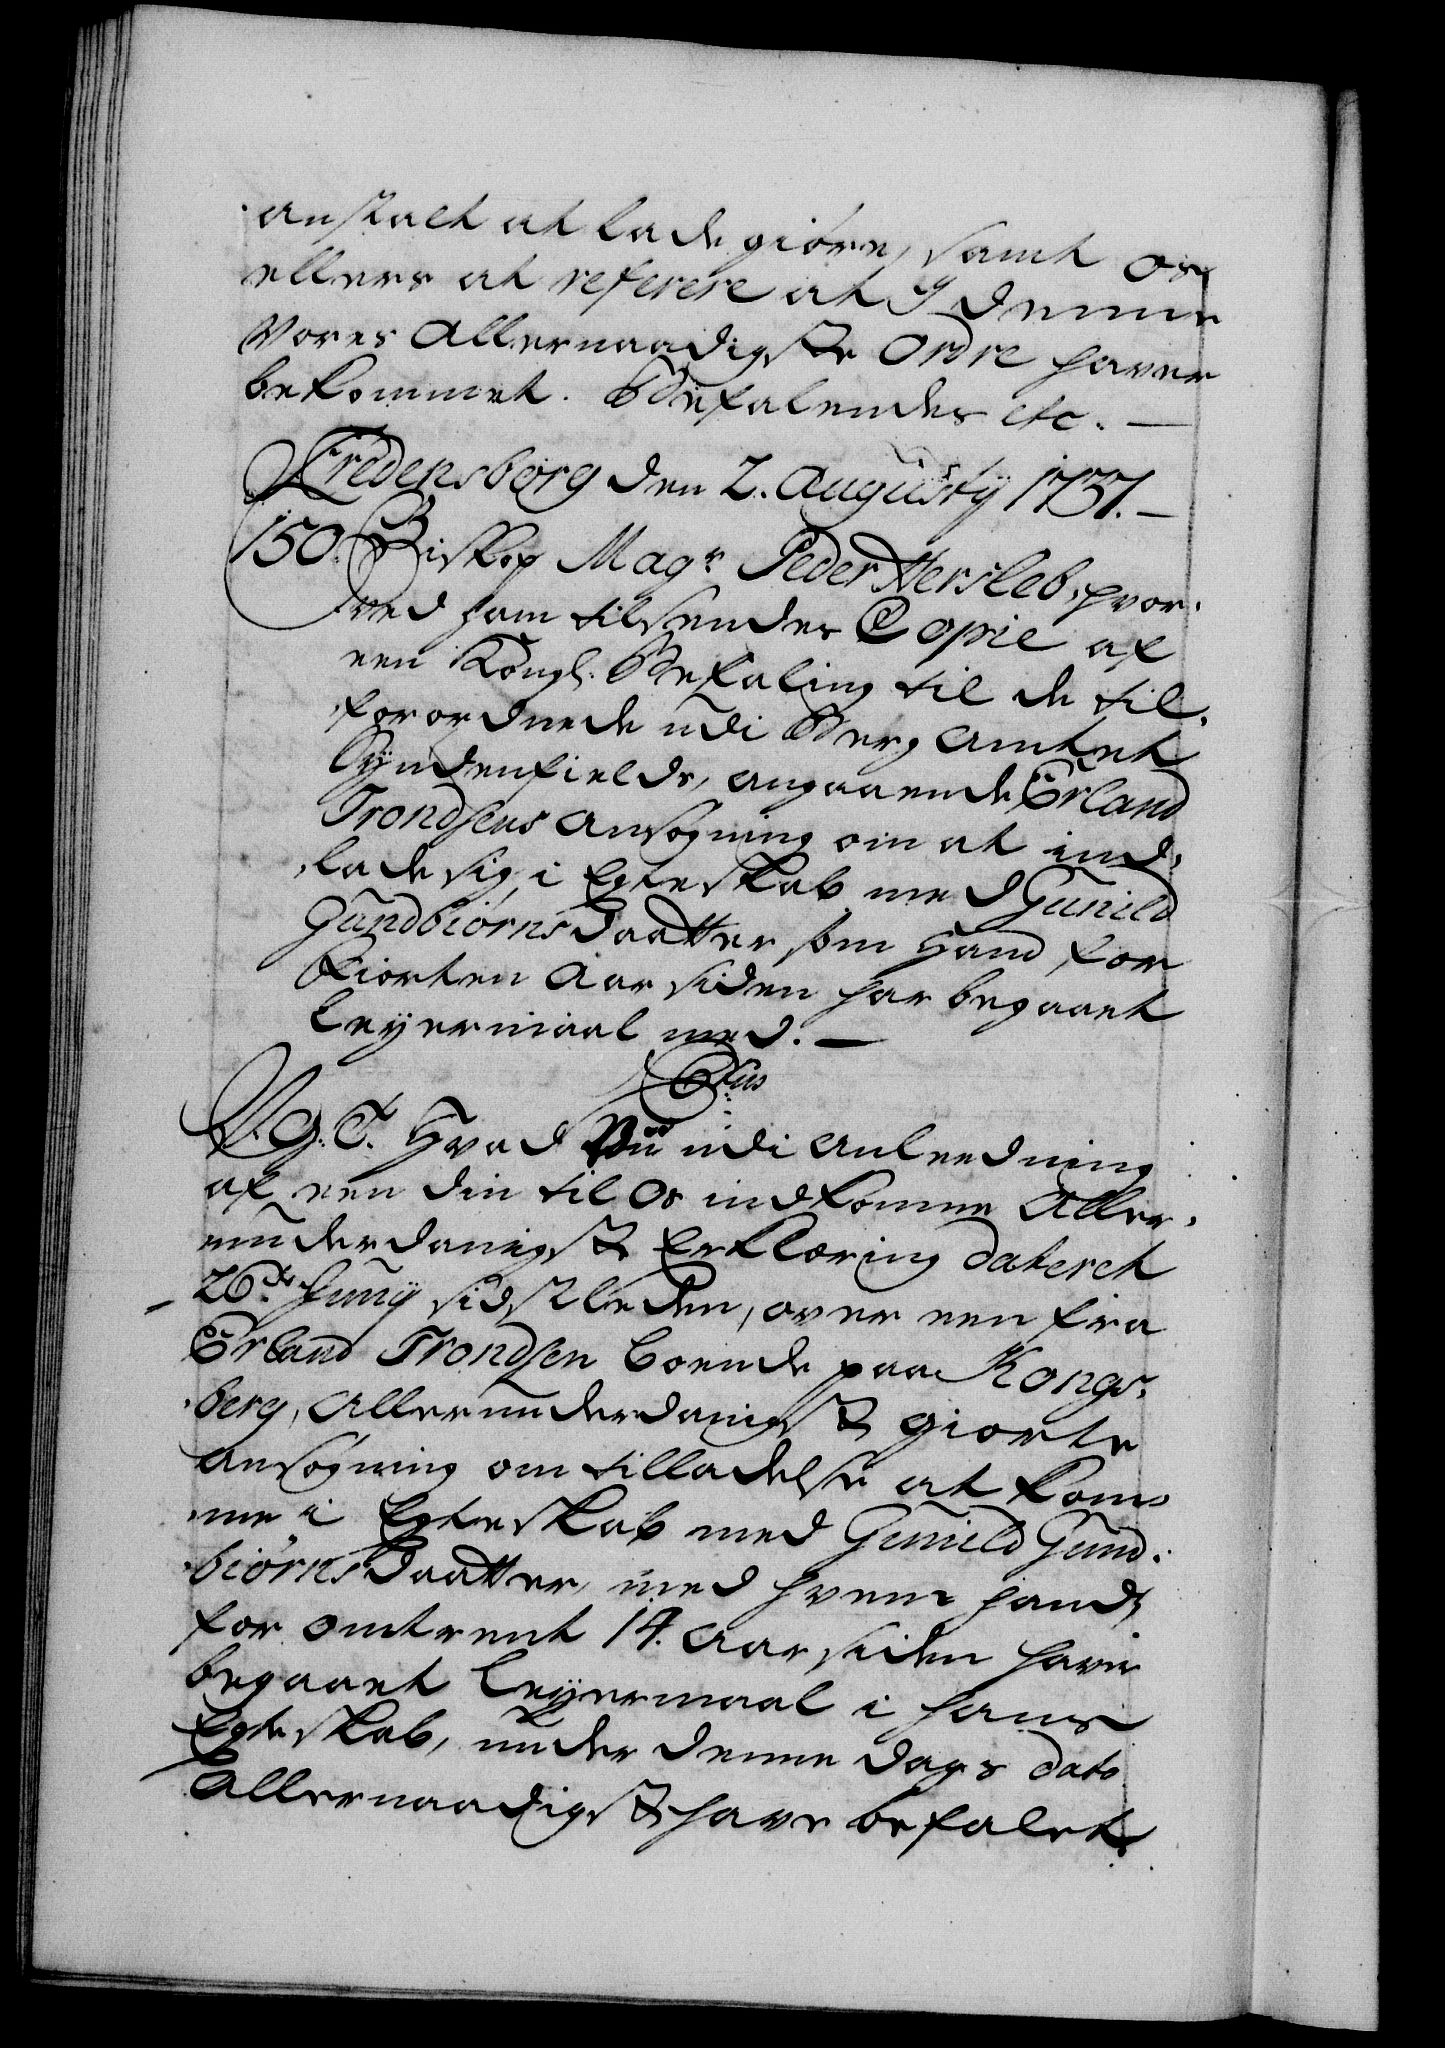 anstalt at lade giøre, samt os
ellers at referere at I denne
Vores Allernaadigste Ordre haver
bekommet. Befalendes etc. —
Fredensborg den 2. Augusty 1737. —
150. Biskop Magr Peder Hersleb, hvor-
ved ham tilsendes Copie af
een Kongl. Befaling til de til-
forordnede udi Berg Amtet
Syndenfields, angaaende Erland
Trondsens Ansøgning om at ind-
lade sig i Egteskab med Gunild
Gundbiørnsdaatter som Hand for
Fiorten Aar siden har begaaet
Leyermaal med. —
C6tus
V. G. T. Hvad Vii udi anleedning
af een din til Os indkomne Aller-
underdanigste Erklæring dateret
26de Juny sidstleden, over een fra
Erland Trondsen boende paa Kongs-
berg, allerunderdanigst giorte
Ansøgning om tilladelse at kom-
me i Egteskab med Gunild Gund-
biørnsdaatter, med hvem hand
for omtrent 14. Aar siden haver
begaaet Leyermaal i hans
Egteskab, under denne Dags Dato
Allernaadigst have befalet